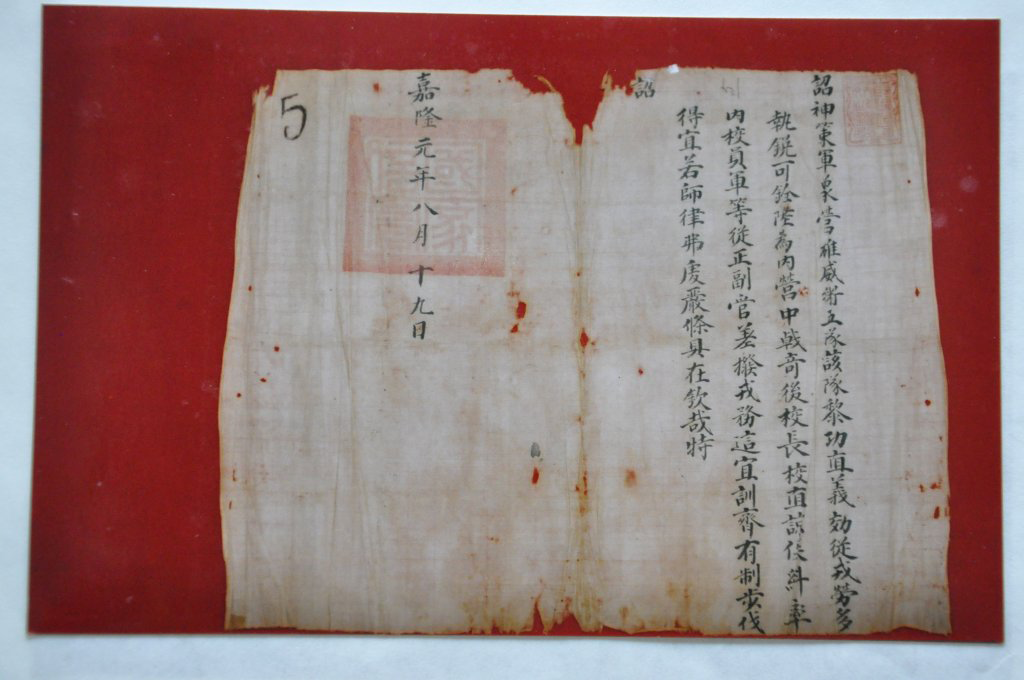 詔神策軍泉營雄威衛五隊該隊黎功直義効從戎勞多
執銳可銓陞為內營中戟奇後校長校直該侯糾率
內校員軍等從正副官差撥戎務這宜訓齊有制步伐
得宜若師律弗虔嚴條具在欽哉特
詔
嘉隆元年八月十九日
5